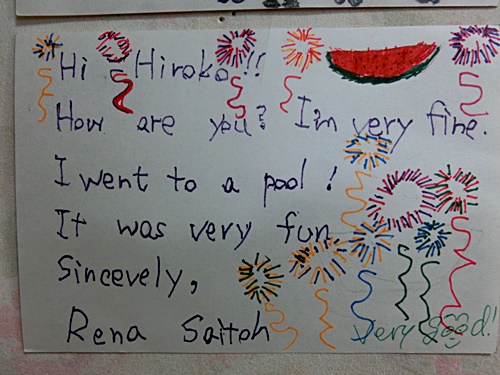 Hi Hiroko!!
How are you? I'm very fine.
I went to a pool!
It was very fun.
Sincevely,
Rena Saitoh
Very good!